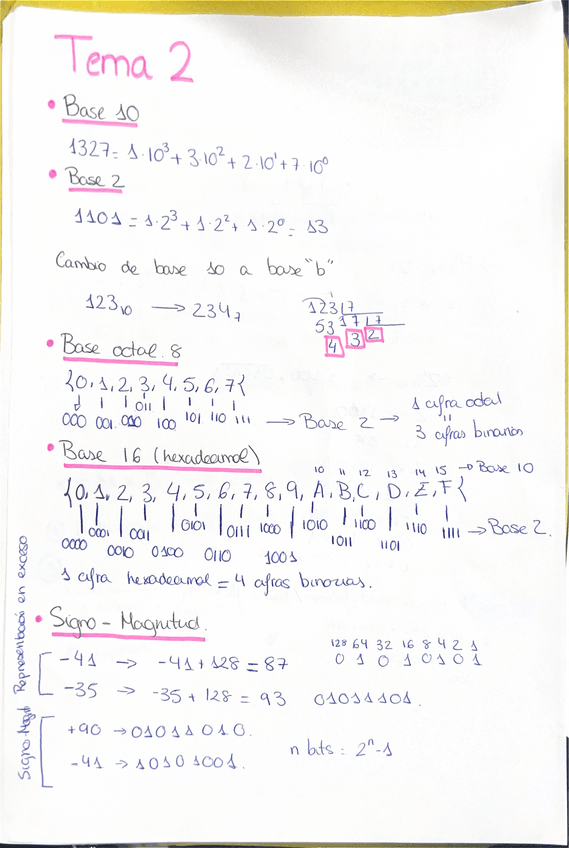 Tema 2
• Base 10
1327 = 1·10³ + 3·10² + 2·10¹ + 7·10⁰
• Base 2
1101 = 1·2³ + 1·2² + 1·2⁰ = 13
Cambio de base 10 a base "b"
123₁₀ → 234₇
123 | 7
53 17 | 7
4 3 2
• Base octal. 8
{0, 1, 2, 3, 4, 5, 6, 7{
011
000 001 010 100 101 110 111 → Base 2 → 1 cifra octal
"
3 cifras binarias
• Base 16 (hexadecimal)
10 11 12 13 14 15 → Base 10
{0, 1, 2, 3, 4, 5, 6, 7, 8, 9, A, B, C, D, E, F{
0001 0011 0101 0111 1000 1010 1100 1110 1111 → Base 2.
0000 0010 0100 0110 1001 1011 1101
1 cifra hexadecimal = 4 cifras binarias.
• Signo - Magnitud.
128 64 32 16 8 4 2 1
-41 → -41 + 128 = 87 0 1 0 1 0 1 0 1
-35 → -35 + 128 = 93 01011101.
+90 → 01011010.
-41 → 10101001.
n bits = 2ⁿ-1
Representación en exceso
Signo-Magnt